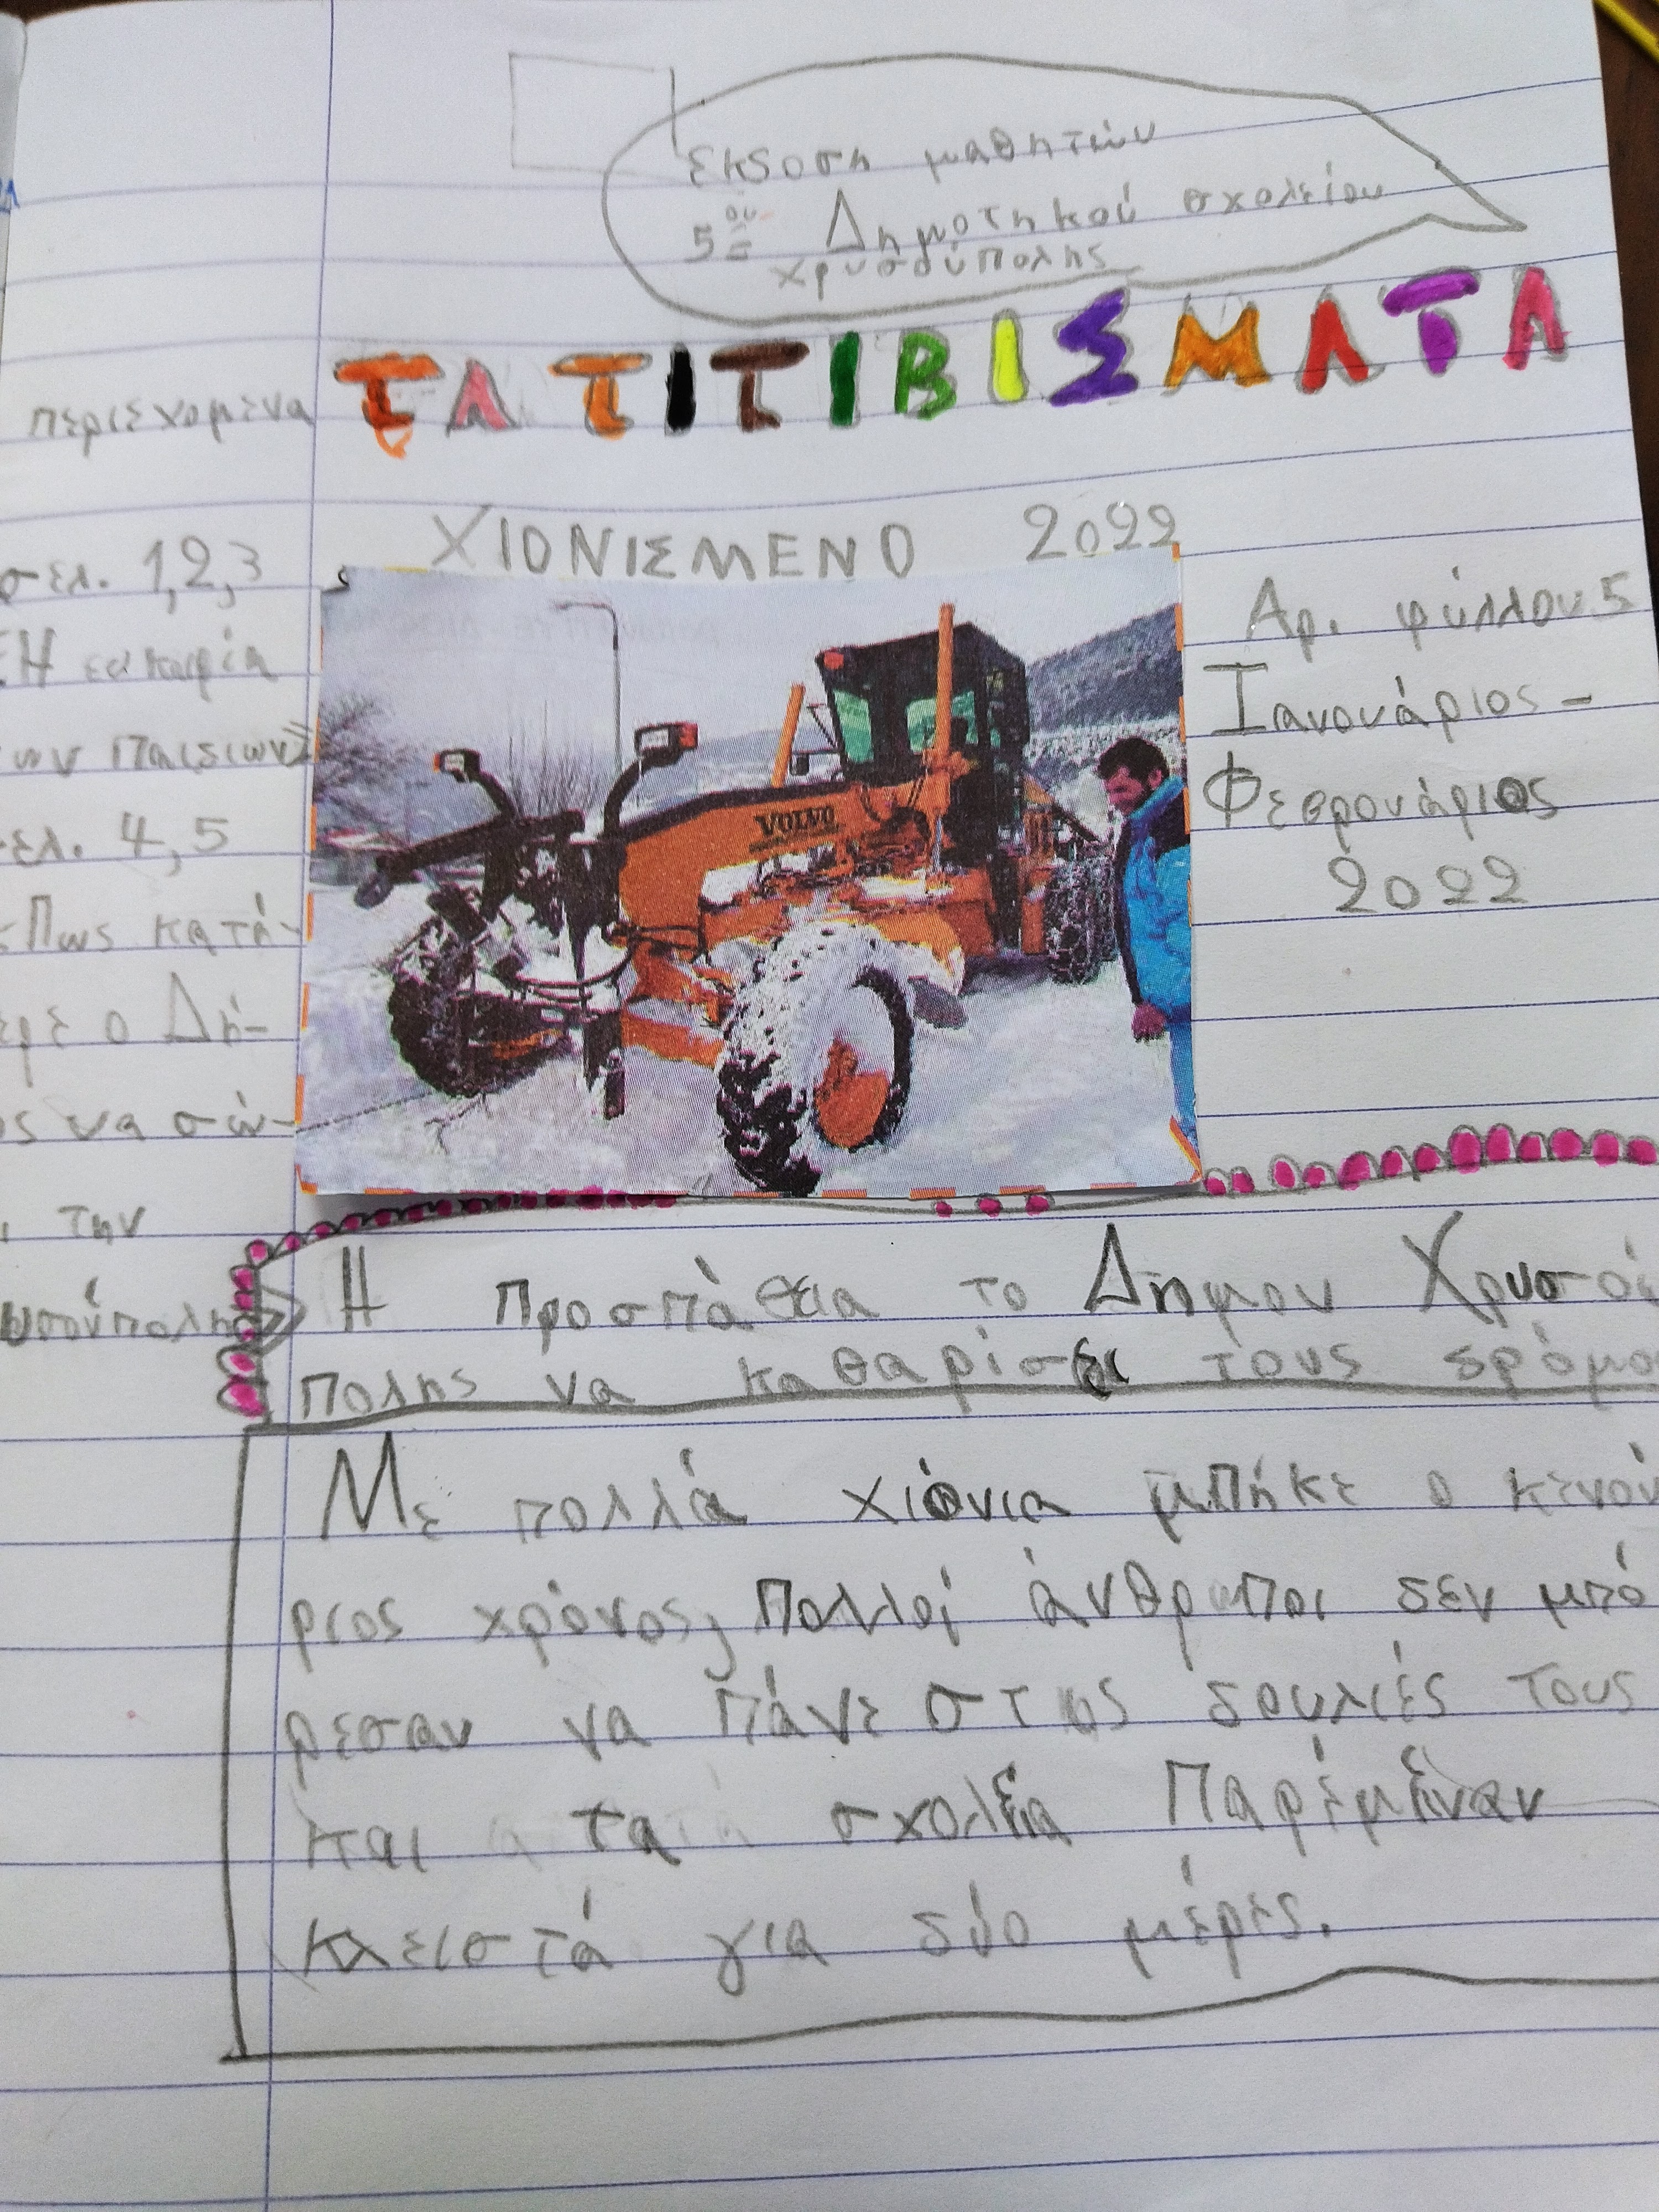 Εκδοση μαθητών
5ου Δημοτηκού σχολείου
χρυσούπολης
ΤΑ ΤΙΤΙΒΙΣΜΑΤΑ
περιεχομενα
ΧΙΟΝΙΣΜΕΝΟ 2022
σελ. 1,2,3
Η ευκαιρία
των παιδιων
σελ. 4,5
Πως κατά-
φερε ο Δή-
ος να σώ-
την
υσούπολη
VOLVO
Αρ. φύλλου 5
Ιανουάριος -
Φεβρουάριος
2022
Η Προσπάθεια το Δημου Χρυσού
πολης να καθαρίσει τους δρόμο
Με πολλά χιόνια μπήκε ο κενού
ριος χρόνος, Πολλοί άνθρωποι δεν μπό
ρεσαν να πάνε στις δουλιές τους
και τα σχολεία Παρέμειναν
κλειστά για δύο μέρες.